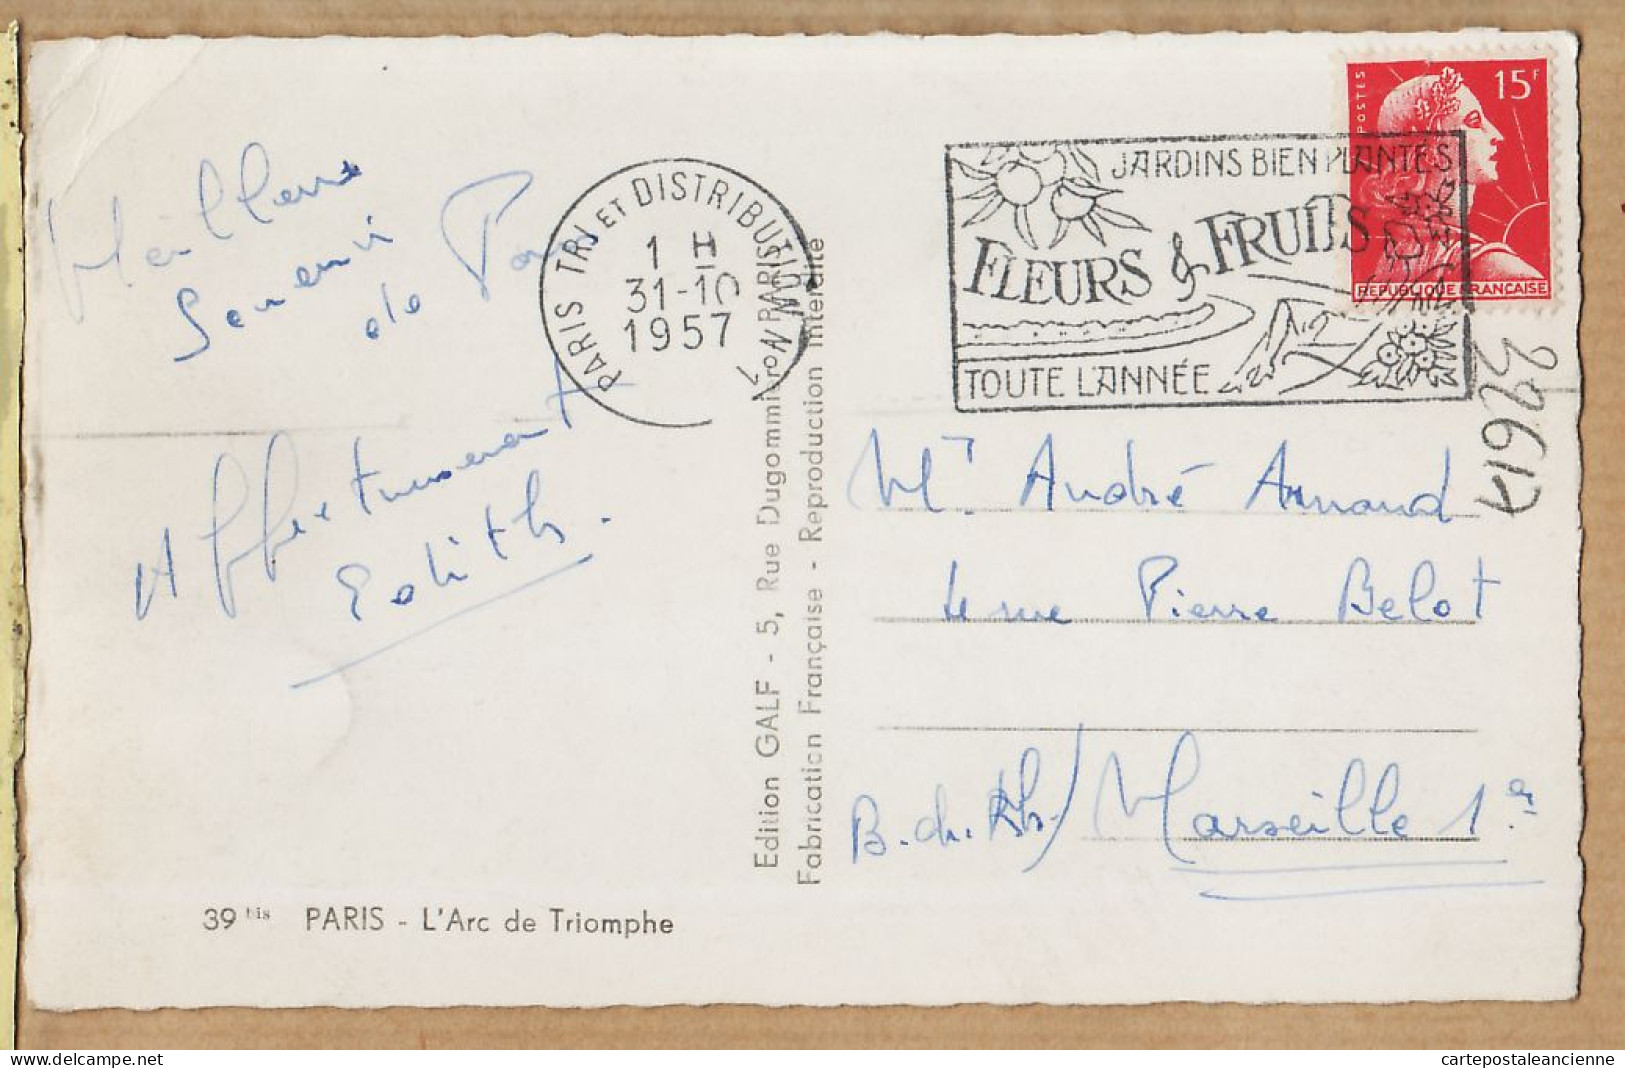 Meilleur
Souvenir
de Paris
Affectueusement
Edith.
39 bis PARIS - L'Arc de Triomphe
PARIS TRI ET DISTRIBUTION
PARIS NORD
1 H
31-10
1957
Edition GALF - 5, Rue Dugommier
Fabrication Française - Reproduction interdite
JARDINS BIEN PLANTÉS
FLEURS & FRUITS
TOUTE L'ANNÉE
POSTES
15F
REPUBLIQUE FRANÇAISE
32617
Mr André Arnaud
4 rue Pierre Belot
B. ch. Rh./ Marseille 1er
cartepostaleancienne